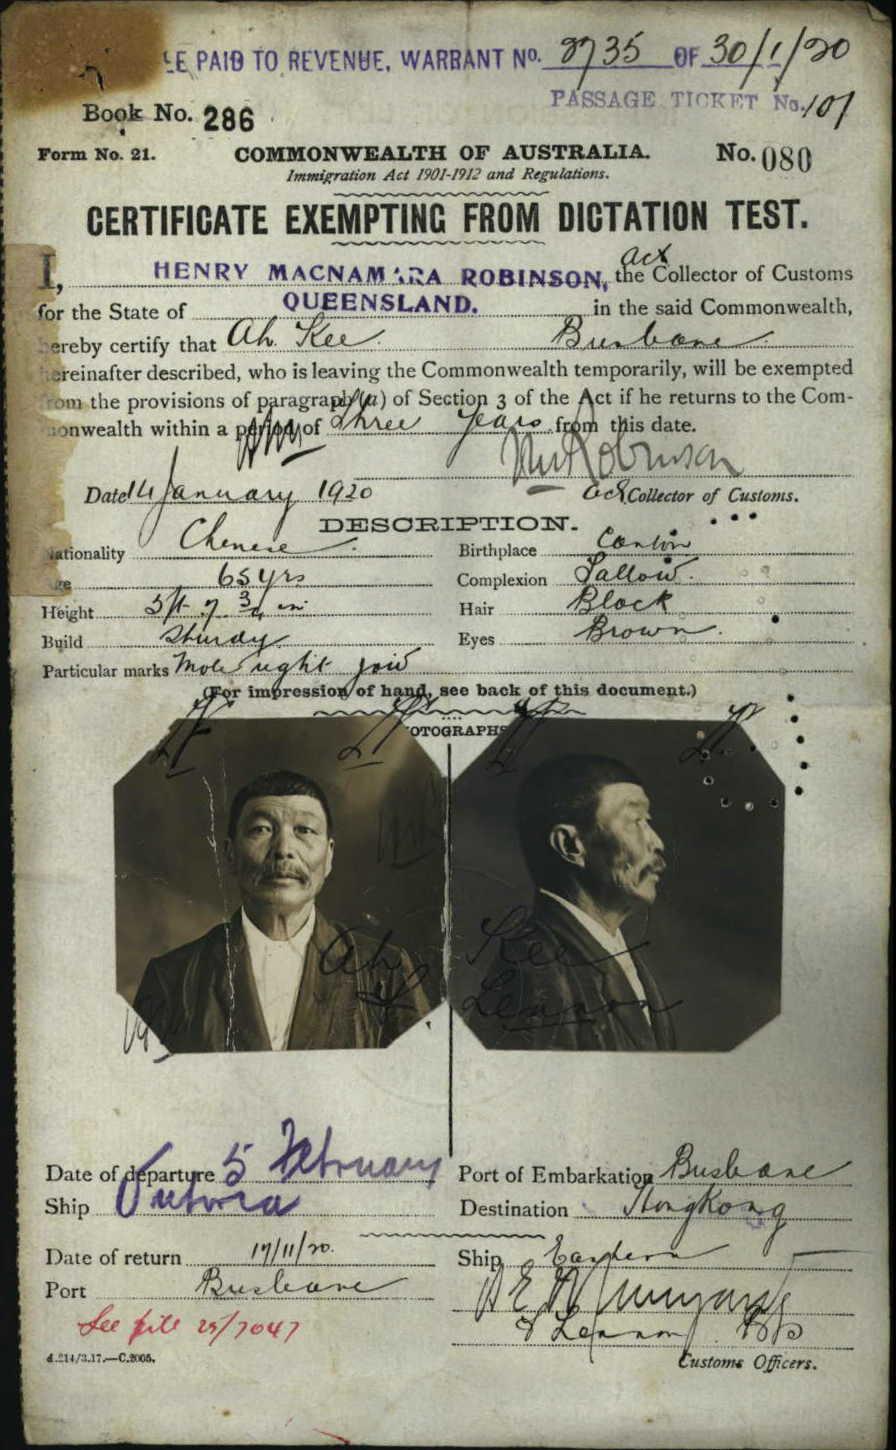 E PAID TO REVENUE, WARRANT No. 2735 OF 30/1/20
PASSAGE TICKET No. 101
Book No. 286
Form No. 21. COMMONWEALTH OF AUSTRALIA. No. 080
Immigration Act 1901-1912 and Regulations.
CERTIFICATE EXEMPTING FROM DICTATION TEST.
I, HENRY MACNAMARA ROBINSON, act the Collector of Customs
for the State of QUEENSLAND. in the said Commonwealth,
ereby certify that Ah Kee Brisbane
ereinafter described, who is leaving the Commonwealth temporarily, will be exempted
om the provisions of paragraph (a) of Section 3 of the Act if he returns to the Com-
onwealth within a period of Three years from this date.
Robinson
Date 14 January 1920 act Collector of Customs.
DESCRIPTION.
ationality Chinese Birthplace Canton
ge 65 yrs Complexion Sallow.
Height 5ft 7 3/4 in Hair Black
Build Sturdy Eyes Brown.
Particular marks Mole right jaw
(For impression of hand, see back of this document.)
OTOGRAPHS
Ah Kee
Lennon
Date of departure 5 February Port of Embarkation Brisbane
Ship Victoria Destination Hong Kong
Date of return 17/11/20. Ship Eastern
Port Brisbane
See file 25/7047
Lennon
d.214/3.17.—C.2005. Customs Officers.